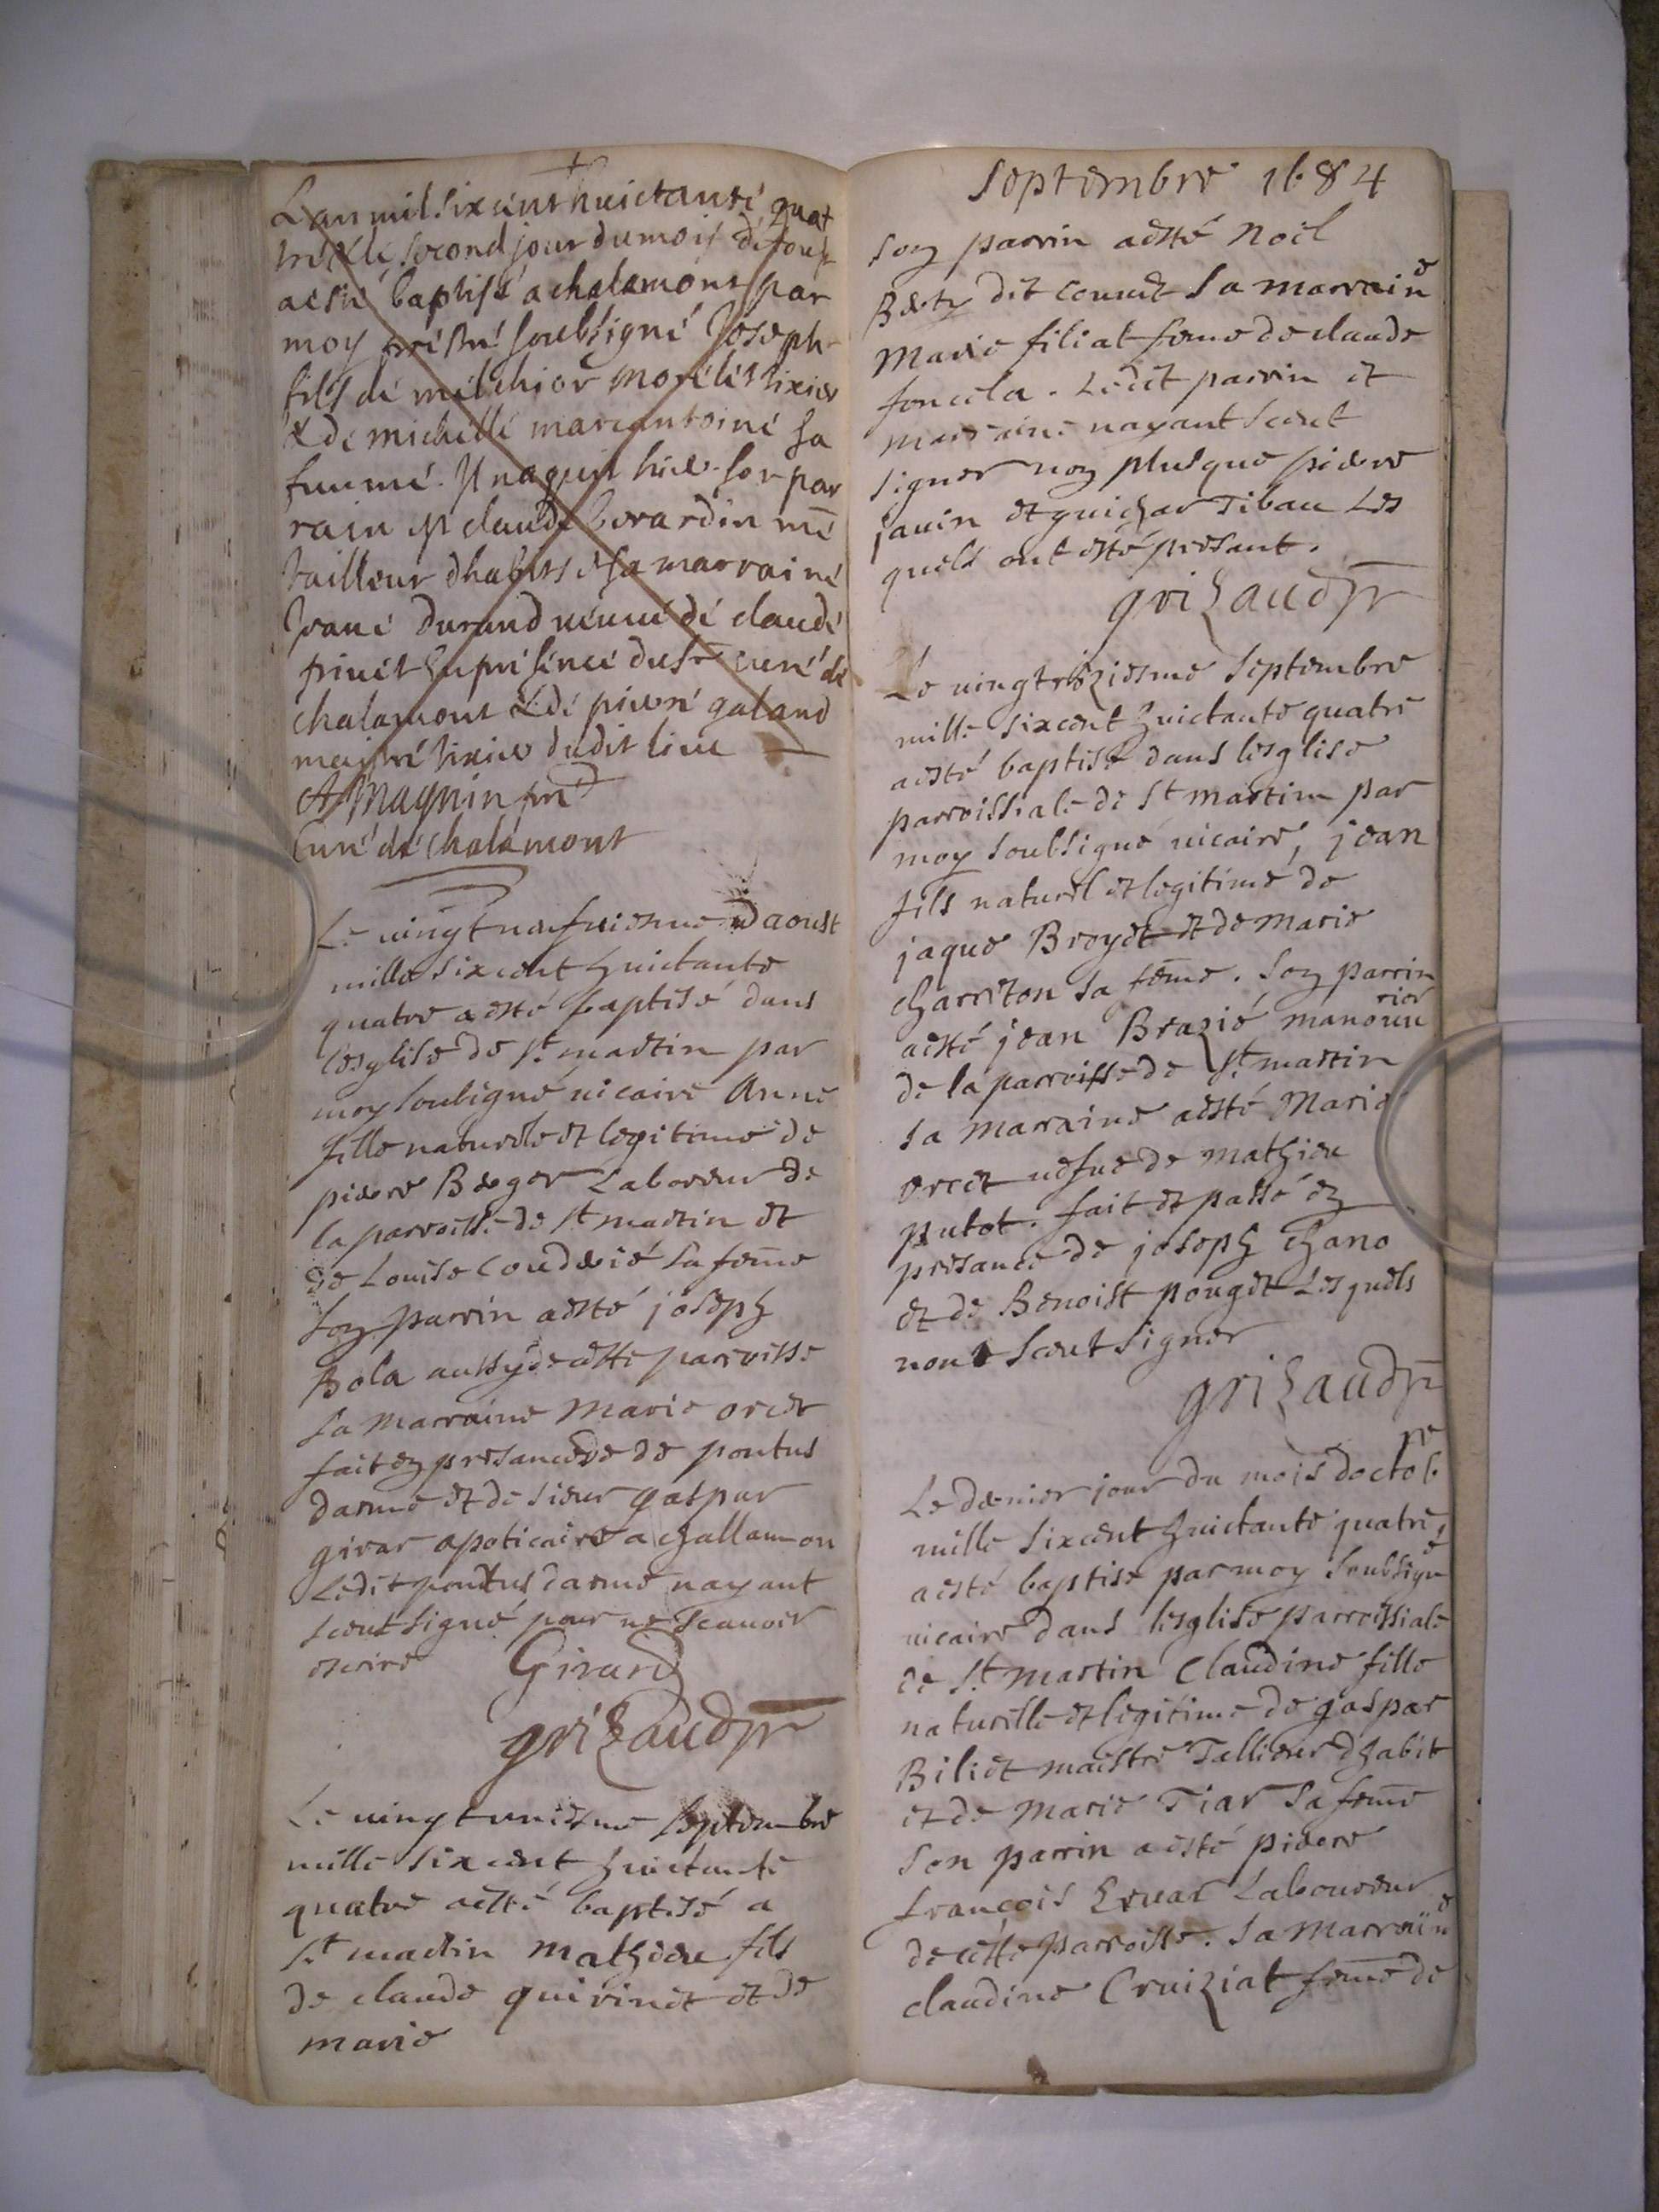 Lan mil six cent huictante quat
tre & le second jour du mois de
a esté baptisé a chalamont par
moy prestre soubsigné Joseph
fils de melchior morel tixier
& de michelle marcantoine sa
femme. Il naquit hier son par
rain est claude berardin me
tailleur dhabits & sa marraine
Jeane durand veuve de claude
privet En presence du sr curé de
chalamont & de pierre galand
maistre tixier dudit lieu
A Magnin pre
Curé de chalamont
Le vingt neufuiesme Daoust
mille sixcent huictante
quatre a esté baptisé dans
lesglise de st martin par
moy soubsigné vicaire Anne
fille naturele et legitime de
pierre Berger Laboreur de
la parroisse de st martin et
de Louise Couderié sa feme
son parrin a esté joseph
Bola aussy de ceste parroisse
sa marraine Marie orcet
fait en presance de pontus
darme et de sieur gaspar
girar apoticaire a challamon
Ledit pontus darme nayant
sceut signé pour ne scauoir
escrire Girard
grizaud ptr
Le vingt uniesme septembre
mille sixcent huictante
quatre a esté baptisé a
st martin mathieu fils
de claude quivinet et de
marie
Septembre 1684
son parrin a esté noel
dit sa marraine
Marie filiat feme de claude
foncela. Ledit parrin et
marraine nayant sceut
signer non plus que pierre
jauin et guichar Tibau Les
quels ont esté presant.
grizaud ptr
Le vingt troiziesme septembre
mille sixcent huictante quatre
a esté baptisé dans lesglise
parroissiale de st martin par
moy soubsigné vicaire, jean
fils naturel et legitime de
jaque Broyet et de marie
charreton sa feme. son parrin
a esté jean Brazié manouurier
de la parroisse de st martin
sa maraine a esté Marie
orcet vefue de mathieu
putot. fait et passé en
presance de joseph chano
et de Benoist pouget Lesquels
nont sceut signer
grizaud ptr
Le dernier jour du mois doctobre
mille sixcent huictante quatre,
a esté baptisé par moy soubsigné
vicaire dans lesglise parroissiale
de st martin Claudine fille
naturelle et legitime de gaspar
Biliet maistre Tallieur dhabit
et de Marie Tiar sa feme
son parrin a esté pierre
françois Labourreur
de ceste parroisse. sa Marraine
claudine Cruiziat feme de